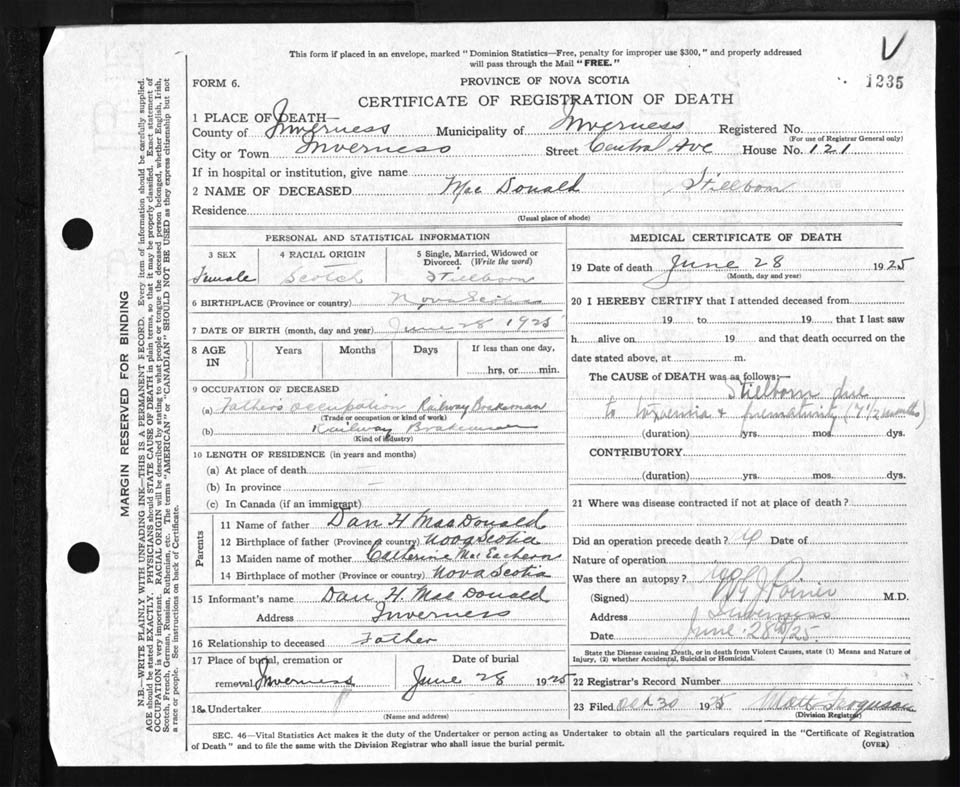 This form if placed in an envelope, marked "Dominion Statistics—Free, penalty for improper use $300," and properly addressed
will pass through the Mail "FREE."
V
FORM 6.
PROVINCE OF NOVA SCOTIA
1235
CERTIFICATE OF REGISTRATION OF DEATH
1 PLACE OF DEATH—
County of Inverness Municipality of Inverness Registered No.
(For use of Registrar General only)
City or Town Inverness Street Central Ave House No. 121
If in hospital or institution, give name
2 NAME OF DECEASED Mac Donald Stillborn
Residence
(Usual place of abode)
PERSONAL AND STATISTICAL INFORMATION
3 SEX 4 RACIAL ORIGIN 5 Single, Married, Widowed or Divorced. (Write the word)
Female Scotch Stillborn
6 BIRTHPLACE (Province or country) Nova Scotia
7 DATE OF BIRTH (month, day and year) June 28 1925
8 AGE IN Years Months Days If less than one day,
hrs, or min.
9 OCCUPATION OF DECEASED
(a) Father's occupation Railway Brakeman
(Trade or occupation or kind of work)
(b) Railway Brakeman
(Kind of industry)
10 LENGTH OF RESIDENCE (in years and months)
(a) At place of death
(b) In province
(c) In Canada (if an immigrant)
Parents
11 Name of father Dan H MacDonald
12 Birthplace of father (Province or country) Nova Scotia
13 Maiden name of mother Catherine Mac Eachern
14 Birthplace of mother (Province or country) Nova Scotia
15 Informant's name Dan H. MacDonald
Address Inverness
16 Relationship to deceased Father
17 Place of burial, cremation or removal Inverness
Date of burial June 28 1925
18 Undertaker
(Name and address)
MEDICAL CERTIFICATE OF DEATH
19 Date of death June 28 1925
(Month, day and year)
20 I HEREBY CERTIFY that I attended deceased from
19 to 19 that I last saw
h alive on 19 and that death occurred on the
date stated above, at m.
The CAUSE OF DEATH was as follows:—
Stillborn due
to toxemia & prematurity (7 1/2 months)
(duration) yrs. mos. dys.
CONTRIBUTORY
(duration) yrs. mos. dys.
21 Where was disease contracted if not at place of death?
Did an operation precede death? Date of
Nature of operation
Was there an autopsy? no
(Signed) Poirier M.D.
Address Inverness
Date June 28th/25.
State the Disease causing Death, or in death from Violent Causes, state (1) Means and Nature of
Injury, (2) whether Accidental, Suicidal or Homicidal.
22 Registrar's Record Number
23 Filed Oct 30 1925 Matt Ferguson
(Division Registrar)
SEC. 46—Vital Statistics Act makes it the duty of the Undertaker or person acting as Undertaker to obtain all the particulars required in the "Certificate of Registration
of Death" and to file the same with the Division Registrar who shall issue the burial permit.
(OVER)
MARGIN RESERVED FOR BINDING
N.B.—WRITE PLAINLY WITH UNFADING INK—THIS IS A PERMANENT RECORD. Every item of information should be carefully supplied.
AGE should be stated EXACTLY. PHYSICIANS should STATE CAUSE OF DEATH in plain terms, so that it may be properly classified. Exact statement of
OCCUPATION is very important. RACIAL ORIGIN will be described by stating to what people or tongue the deceased person belonged, whether English, Irish,
Scotch, French, German, Russian, Ruthenian, etc. The terms "AMERICAN" or "CANADIAN" SHOULD NOT BE USED as they express citizenship but not
a race or people. See instructions on back of Certificate.